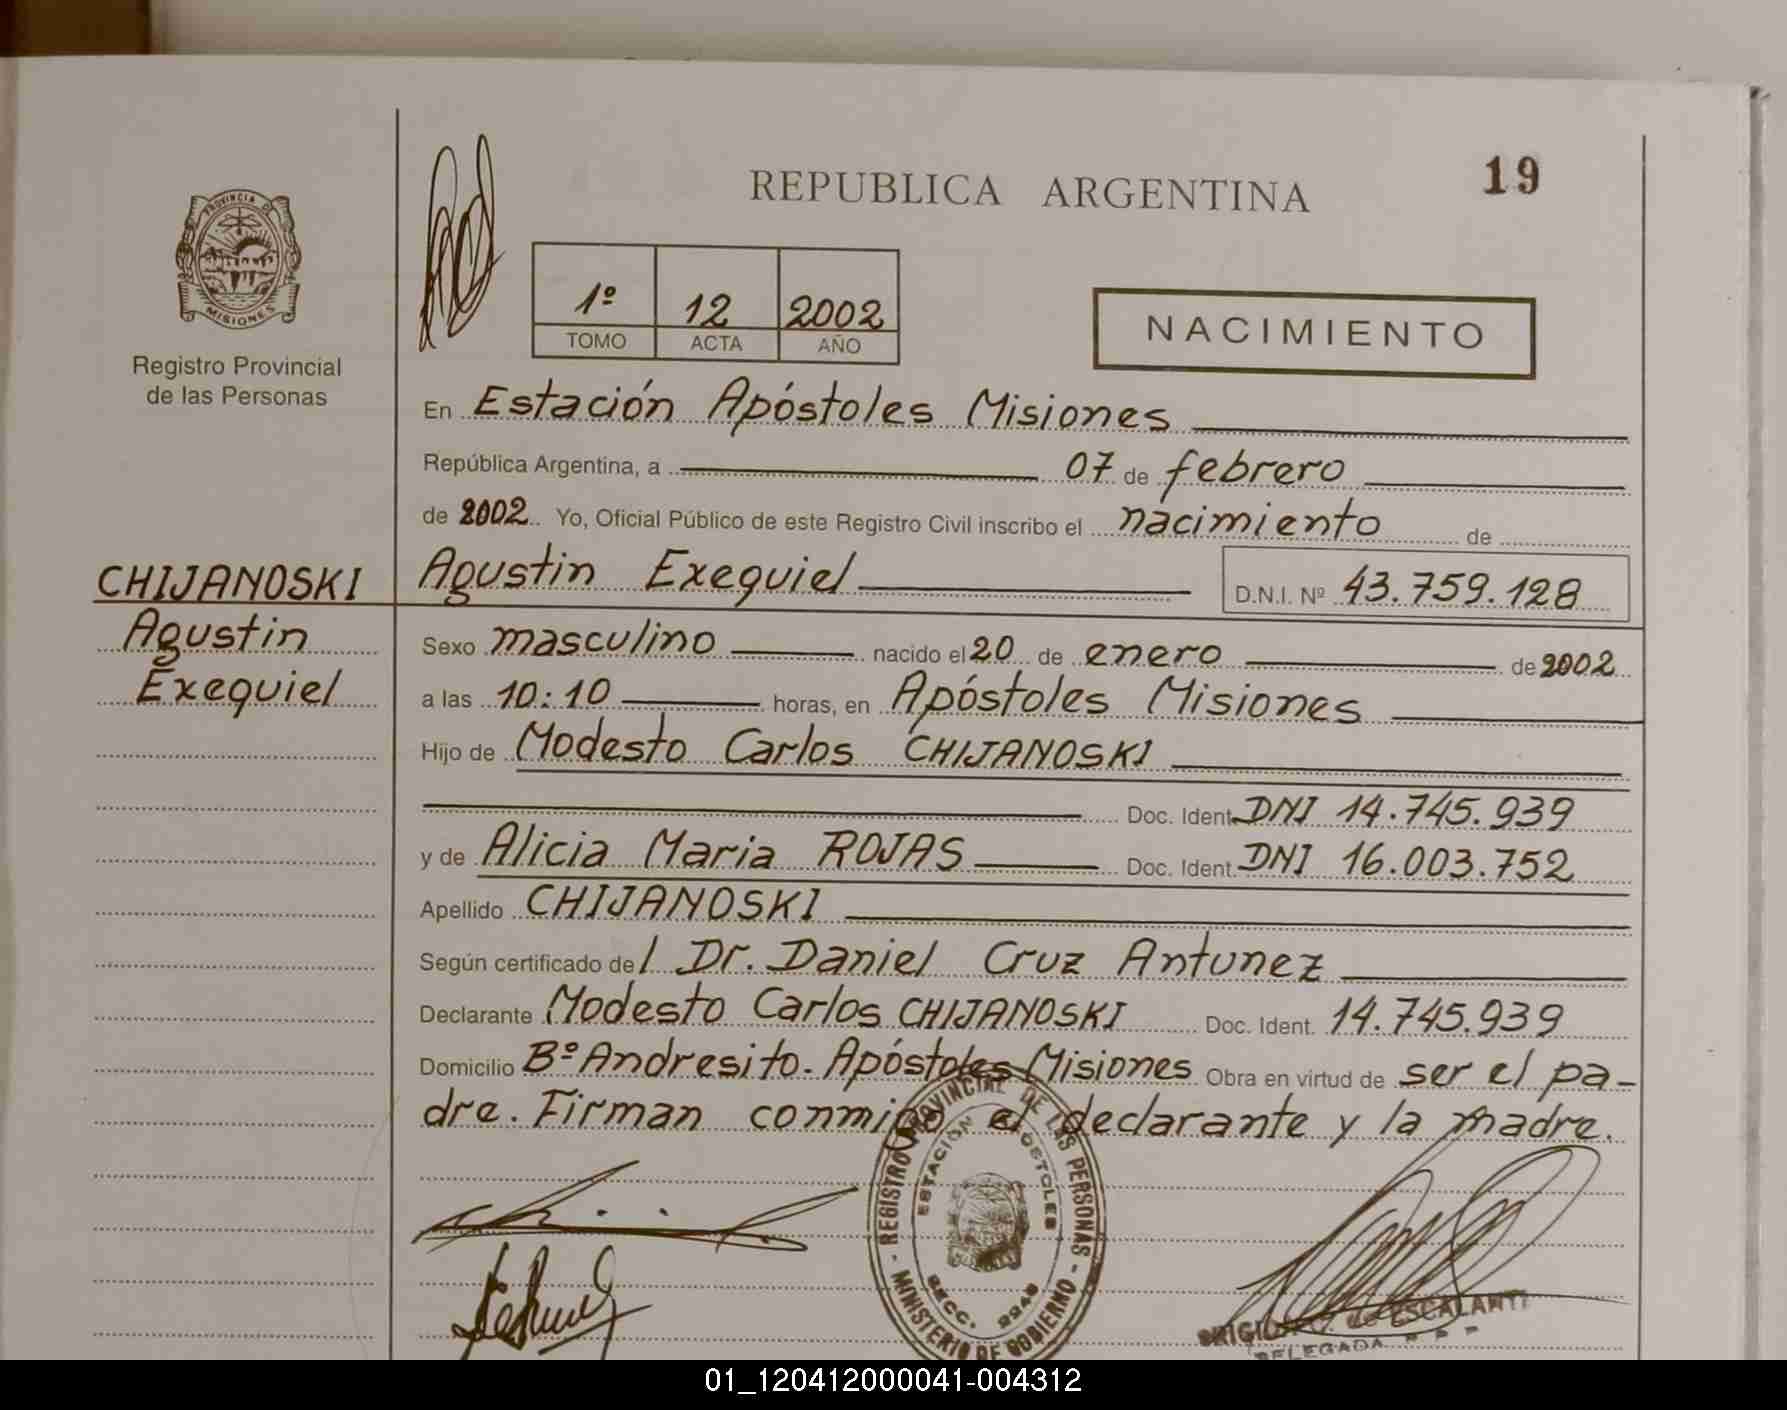 REPUBLICA ARGENTINA
19
PROVINCIA DE
MISIONES
Registro Provincial
de las Personas
1º 12 2002
TOMO ACTA AÑO
NACIMIENTO
En Estación Apóstoles Misiones
República Argentina, a 07 de febrero
de 2002 Yo, Oficial Público de este Registro Civil inscribo el nacimiento de
CHIJANOSKI
Agustin
Exequiel
Agustin Exequiel D.N.I. Nº 43.759.128
Sexo masculino nacido el 20 de enero de 2002
a las 10:10 horas, en Apóstoles Misiones
Hijo de Modesto Carlos CHIJANOSKI
Doc. Ident. DNI 14.745.939
y de Alicia Maria ROJAS Doc. Ident. DNI 16.003.752
Apellido CHIJANOSKI
Según certificado del Dr. Daniel Cruz Antunez
Declarante Modesto Carlos CHIJANOSKI Doc. Ident. 14.745.939
Domicilio Bº Andresito. Apóstoles Misiones Obra en virtud de ser el pa-
dre. Firman conmigo el declarante y la madre.
REGISTRO PROVINCIAL DE LAS PERSONAS - MINISTERIO DE GOBIERNO -
ESTACIÓN APOSTOLES
SECC. 2248
de ESCALANTE
DELEGADA R P P
01_120412000041-004312